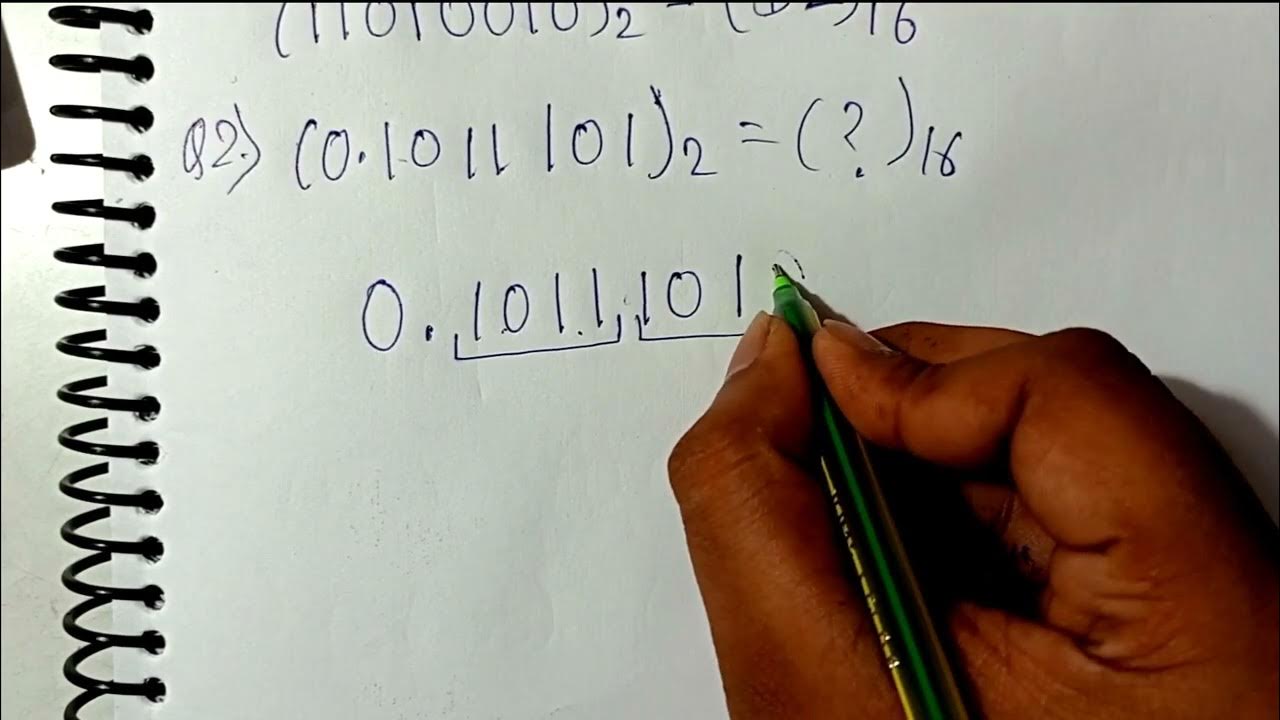 (11010010)₂ = (
)₁₆
Q2.) (0.1011 101)₂ = (?)₁₆
0.1011 101